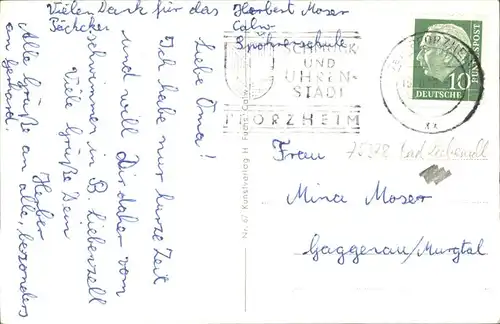 Vielen Dank für das
Päckchen
Herbert Moser
Calw-
Liebe Oma!
Ich habe nur kurze Zeit
und will Dir daher vom
schwimmen in B. Liebenzell
Viele Grüße Dein
Herber
Alle Grüße an alle, besonders
an Gerhard.
UND
UHREN-
STADT
PFORZHEIM
PFORZHEIM
10
DEUTSCHE
BUNDESPOST
Frau
75378 Bad Liebenzell
Mina Moser
Gaggenau/Murgtal
Nr. 67 Kunstverlag H. Fuchs, Calw